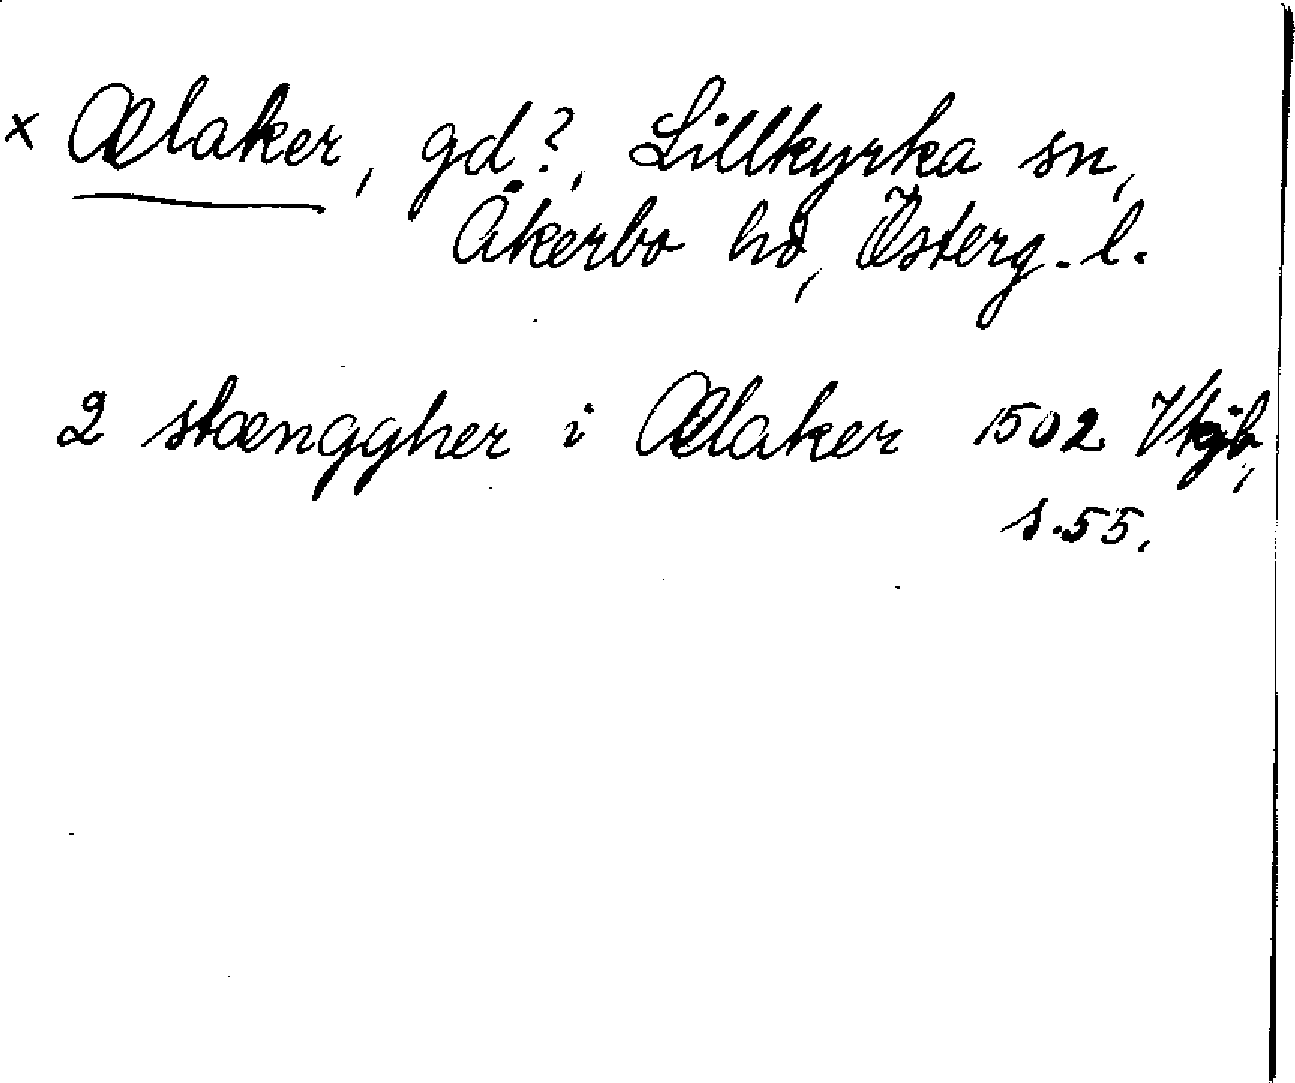 × Ælaker, gd?, Lillkyrka sn,
Åkerbo hd, Österg. l.
2 stængher i Ælaker 1502 Vkjb,
s. 55.